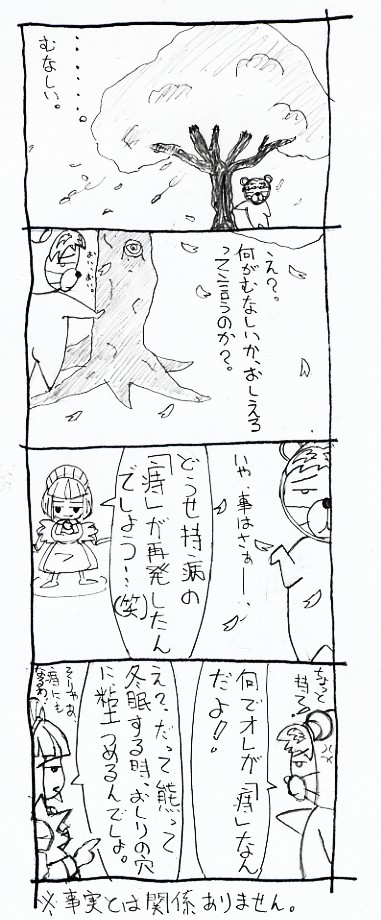 ・・・・・・。
むなしい。
え?。
何がむなしいか、おしえろ
って言うのか?。
いや、事はさぁー、、
どうせ持病の
「痔」が再発したん
でしょう…(笑)
ちょっと
待て?
何でオレが「痔」なん
だよ!!。
え?、だって熊って
冬眠する時、おしりの穴
に粘土つめるんでしょ。
そりゃあ
痔にも
なるわ。
※、事実とは関係ありません。